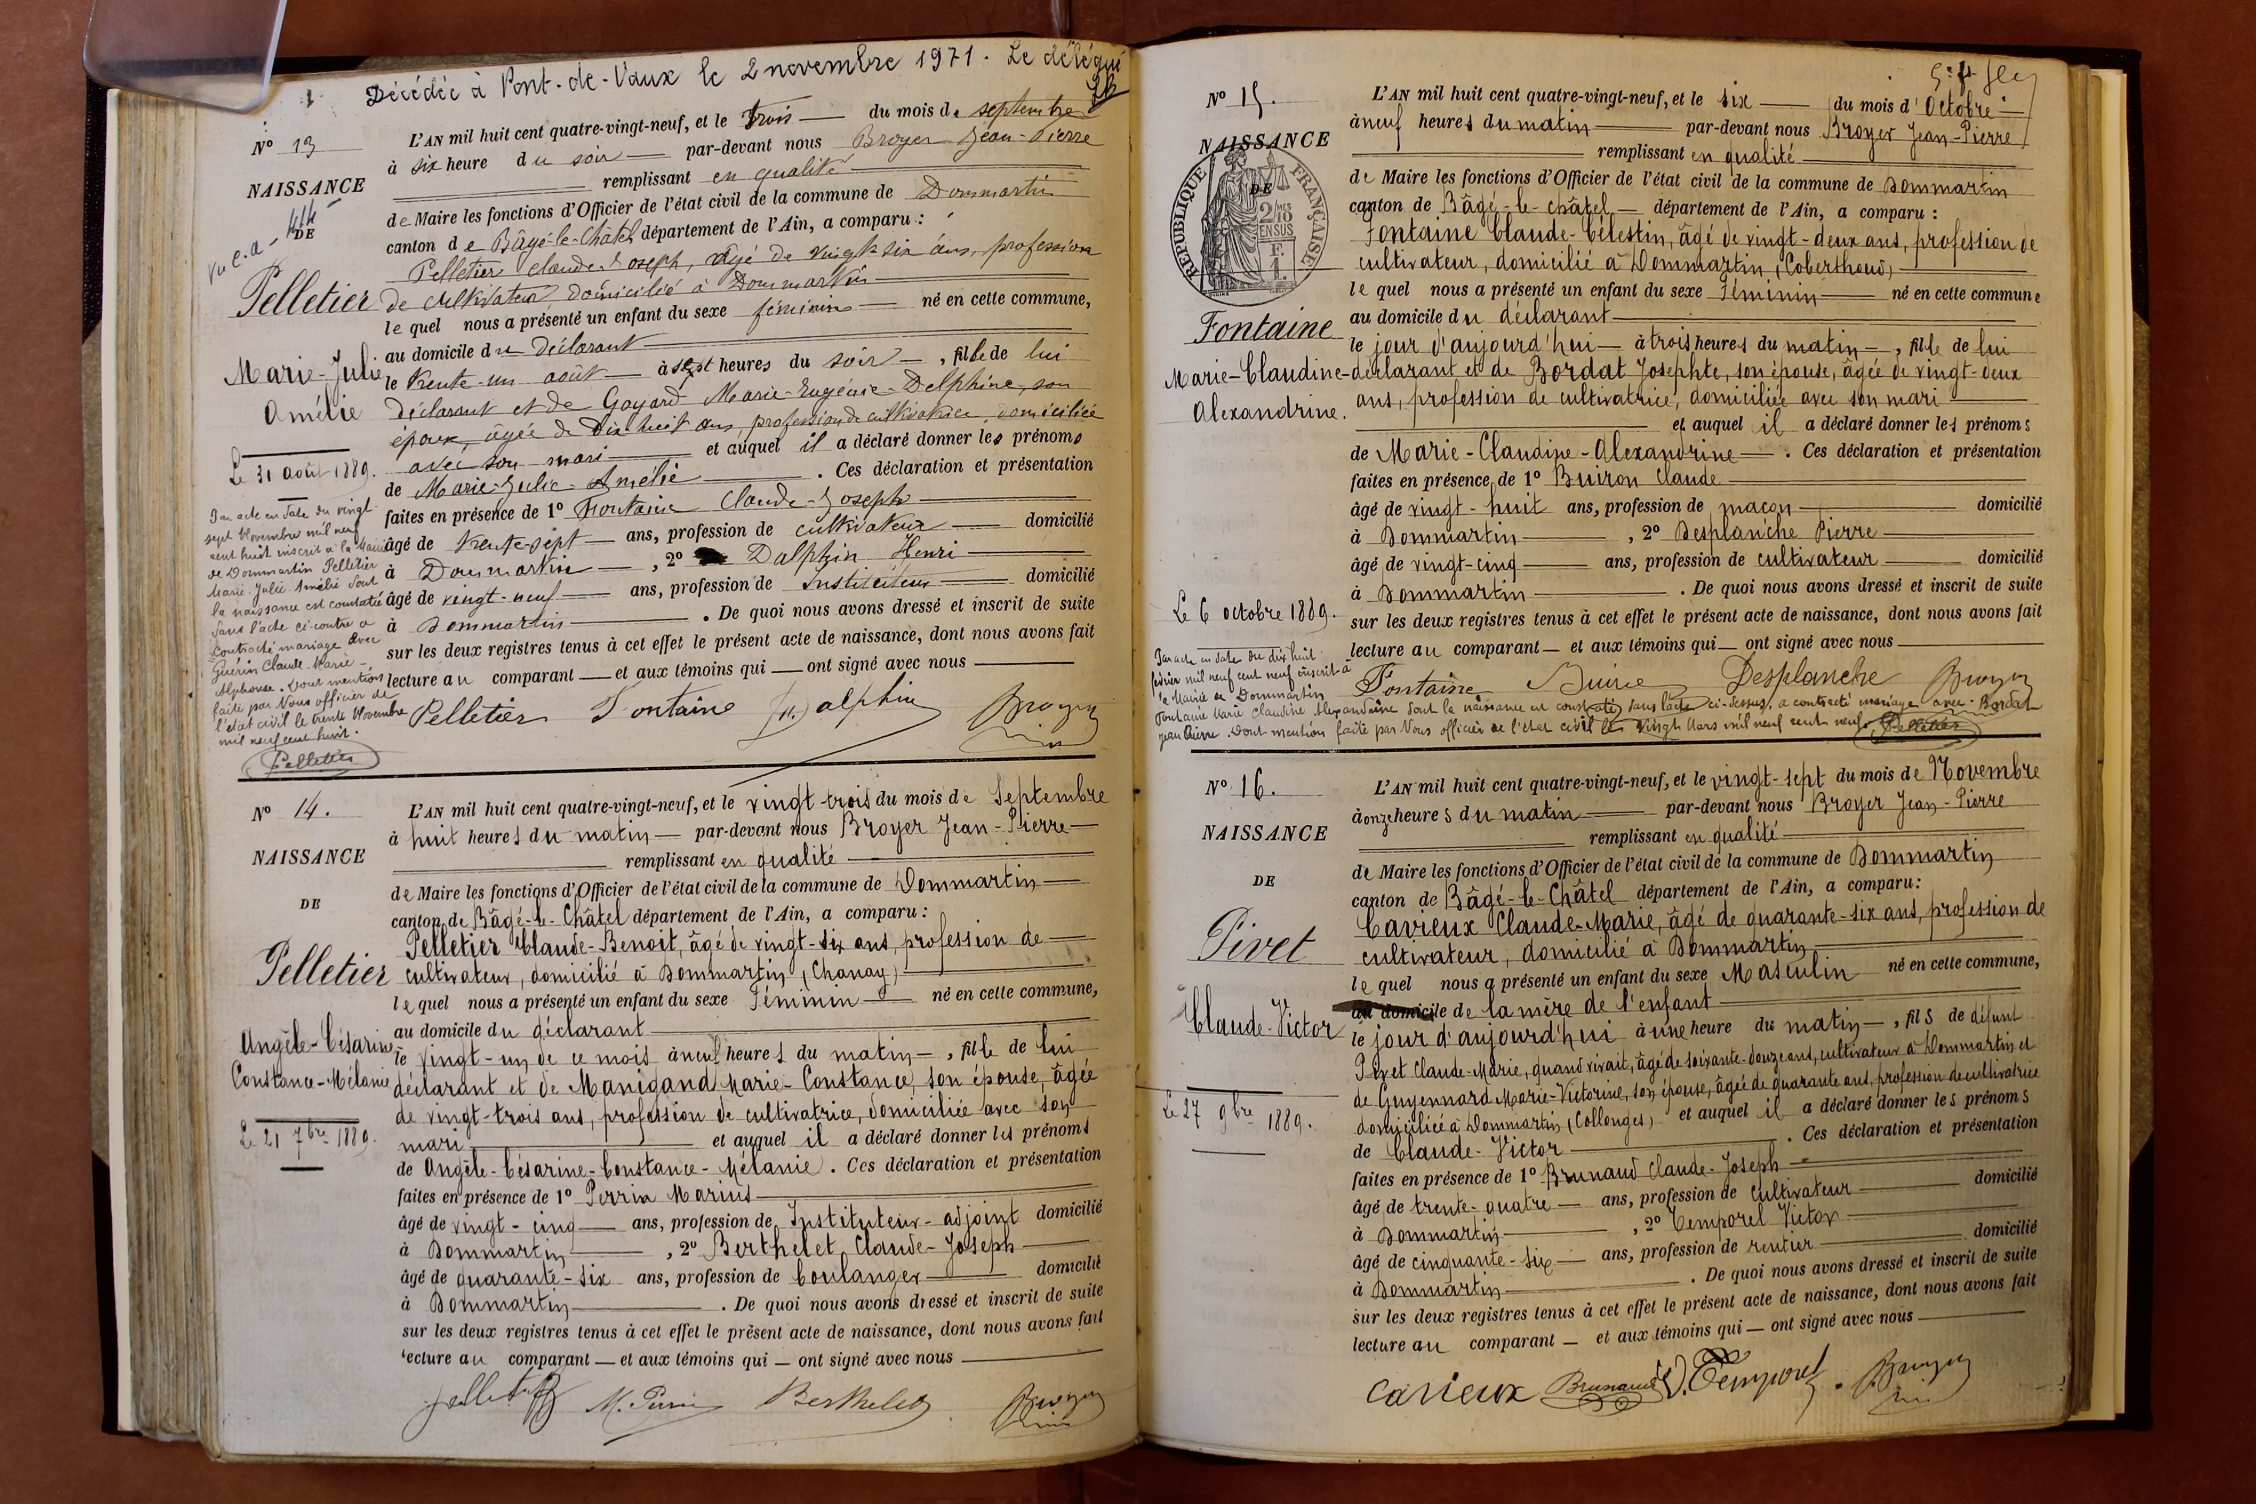 Décédée à Pont-de-Vaux le 2 novembre 1971. Le délégué
N° 13
NAISSANCE
DE
Pelletier
Marie-Julie
Amélie
Le 31 août 1889.
Par acte en date du vingt
sept Novembre mil neuf
cent huit inscrit à la Mairie
de Dommartin Pelletier
Marie-Julie-Amélie dont
la naissance est constatée
dans l'acte ci-contre a
contracté mariage avec
Guérin Claude-Marie-
Alphonse. Dont mention
faite par Nous officier de
l'état civil le trente Novembre
mil neuf cent huit.
Pelletier
L'AN mil huit cent quatre-vingt-neuf, et le trois du mois de septembre
à six heure du soir par-devant nous Broyer Jean-Pierre
remplissant en qualité
de Maire les fonctions d'Officier de l'état civil de la commune de Dommartin
canton de Bâgé-le-Châtel département de l'Ain, a comparu :
Pelletier Claude-Joseph, âgé de vingt-six ans, profession
de cultivateur domicilié à Dommartin
lequel nous a présenté un enfant du sexe féminin né en cette commune,
au domicile du déclarant
le trente-un août à sept heures du soir, fille de lui
déclarant et de Goyard Marie-Eugénie-Delphine, son
épouse, âgée de dix huit ans, profession de cultivatrice, domiciliée
avec son mari et auquel il a déclaré donner les prénoms
de Marie-Julie-Amélie. Ces déclaration et présentation
faites en présence de 1° Fontaine Claude-Joseph
âgé de trente-sept ans, profession de cultivateur domicilié
à Dommartin, 2° Dalphin Henri
âgé de vingt-neuf ans, profession de Instituteur domicilié
à Dommartin. De quoi nous avons dressé et inscrit de suite
sur les deux registres tenus à cet effet le présent acte de naissance, dont nous avons fait
lecture au comparant et aux témoins qui ont signé avec nous
Pelletier Fontaine H. Dalphin Broyer
N° 14.
NAISSANCE
DE
Pelletier
Angèle-Césarine
Constance-Mélanie
Le 21 7bre 1889.
L'AN mil huit cent quatre-vingt-neuf, et le vingt-trois du mois de Septembre
à huit heures du matin par-devant nous Broyer Jean-Pierre
remplissant en qualité
de Maire les fonctions d'Officier de l'état civil de la commune de Dommartin
canton de Bâgé-le-Châtel département de l'Ain, a comparu :
Pelletier Claude-Benoit, âgé de vingt-six ans, profession de
cultivateur, domicilié à Dommartin (Chanay)
lequel nous a présenté un enfant du sexe Féminin né en cette commune,
au domicile du déclarant
le vingt-un de ce mois à neuf heures du matin, fille de lui
déclarant et de Manigand Marie-Constance, son épouse, âgée
de vingt-trois ans, profession de cultivatrice, domiciliée avec son
mari et auquel il a déclaré donner les prénoms
de Angèle-Césarine-Constance-Mélanie. Ces déclaration et présentation
faites en présence de 1° Perrin Marius
âgé de vingt-cinq ans, profession de Instituteur-adjoint domicilié
à Dommartin, 2° Berthelet Claude-Joseph
âgé de quarante-six ans, profession de boulanger domicilié
à Dommartin. De quoi nous avons dressé et inscrit de suite
sur les deux registres tenus à cet effet le présent acte de naissance, dont nous avons fait
lecture au comparant et aux témoins qui ont signé avec nous
Pelletier M. Perrin Berthelet Broyer
N° 15.
NAISSANCE
DE
RÉPUBLIQUE FRANÇAISE
2/10 EN SUS
F. 1.
Fontaine
Marie-Claudine-
Alexandrine.
Le 6 octobre 1889.
L'AN mil huit cent quatre-vingt-neuf, et le six du mois d'Octobre
à neuf heures du matin par-devant nous Broyer Jean-Pierre
remplissant en qualité
de Maire les fonctions d'Officier de l'état civil de la commune de Dommartin
canton de Bâgé-le-châtel département de l'Ain, a comparu :
Fontaine Claude-Célestin, âgé de vingt-deux ans, profession de
cultivateur, domicilié à Dommartin (Coberthoud)
lequel nous a présenté un enfant du sexe Féminin né en cette commune
au domicile du déclarant
le jour d'aujourd'hui à trois heures du matin, fille de lui
déclarant et de Bordat Josephte, son épouse, âgée de vingt-deux
ans, profession de cultivatrice, domiciliée avec son mari
et auquel il a déclaré donner les prénoms
de Marie-Claudine-Alexandrine. Ces déclaration et présentation
faites en présence de 1° Buiron Claude
âgé de vingt-huit ans, profession de maçon domicilié
à Dommartin, 2° Desplanche Pierre
âgé de vingt-cinq ans, profession de cultivateur domicilié
à Dommartin. De quoi nous avons dressé et inscrit de suite
sur les deux registres tenus à cet effet le présent acte de naissance, dont nous avons fait
lecture au comparant et aux témoins qui ont signé avec nous
Fontaine Desplanche Broyer
Par acte en date du dix huit
février mil neuf cent neuf inscrit à
la Mairie de Dommartin
Fontaine Marie Claudine Alexandrine dont la naissance est constatée dans l'acte ci-dessus, a contracté mariage avec Bordat
Jean Pierre. Dont mention faite par Nous officier de l'état civil le vingt Mars mil neuf cent neuf. Pelletier
N° 16.
NAISSANCE
DE
Pivet
Claude-Victor
Le 27 9bre 1889.
L'AN mil huit cent quatre-vingt-neuf, et le vingt-sept du mois de Novembre
à onze heures du matin par-devant nous Broyer Jean-Pierre
remplissant en qualité
de Maire les fonctions d'Officier de l'état civil de la commune de Dommartin
canton de Bâgé-le-Châtel département de l'Ain, a comparu :
Cavieux Claude-Marie, âgé de quarante-six ans, profession de
cultivateur, domicilié à Dommartin
lequel nous a présenté un enfant du sexe Masculin né en cette commune,
au domicile de la mère de l'enfant
le jour d'aujourd'hui à une heure du matin, fils de défunt
Pivet Claude-Marie, quand vivait, âgé de soixante-douze ans, cultivateur à Dommartin et
de Guyennard Marie-Victorine, son épouse, âgée de quarante ans, profession de cultivatrice
domiciliée à Dommartin (Collonges) et auquel il a déclaré donner les prénoms
de Claude-Victor. Ces déclaration et présentation
faites en présence de 1° Brunaud Claude-Joseph
âgé de trente-quatre ans, profession de cultivateur domicilié
à Dommartin, 2° Temporel Victor
âgé de cinquante-six ans, profession de rentier domicilié
à Dommartin. De quoi nous avons dressé et inscrit de suite
sur les deux registres tenus à cet effet le présent acte de naissance, dont nous avons fait
lecture au comparant et aux témoins qui ont signé avec nous
Cavieux Brunaud V. Temporel Broyer